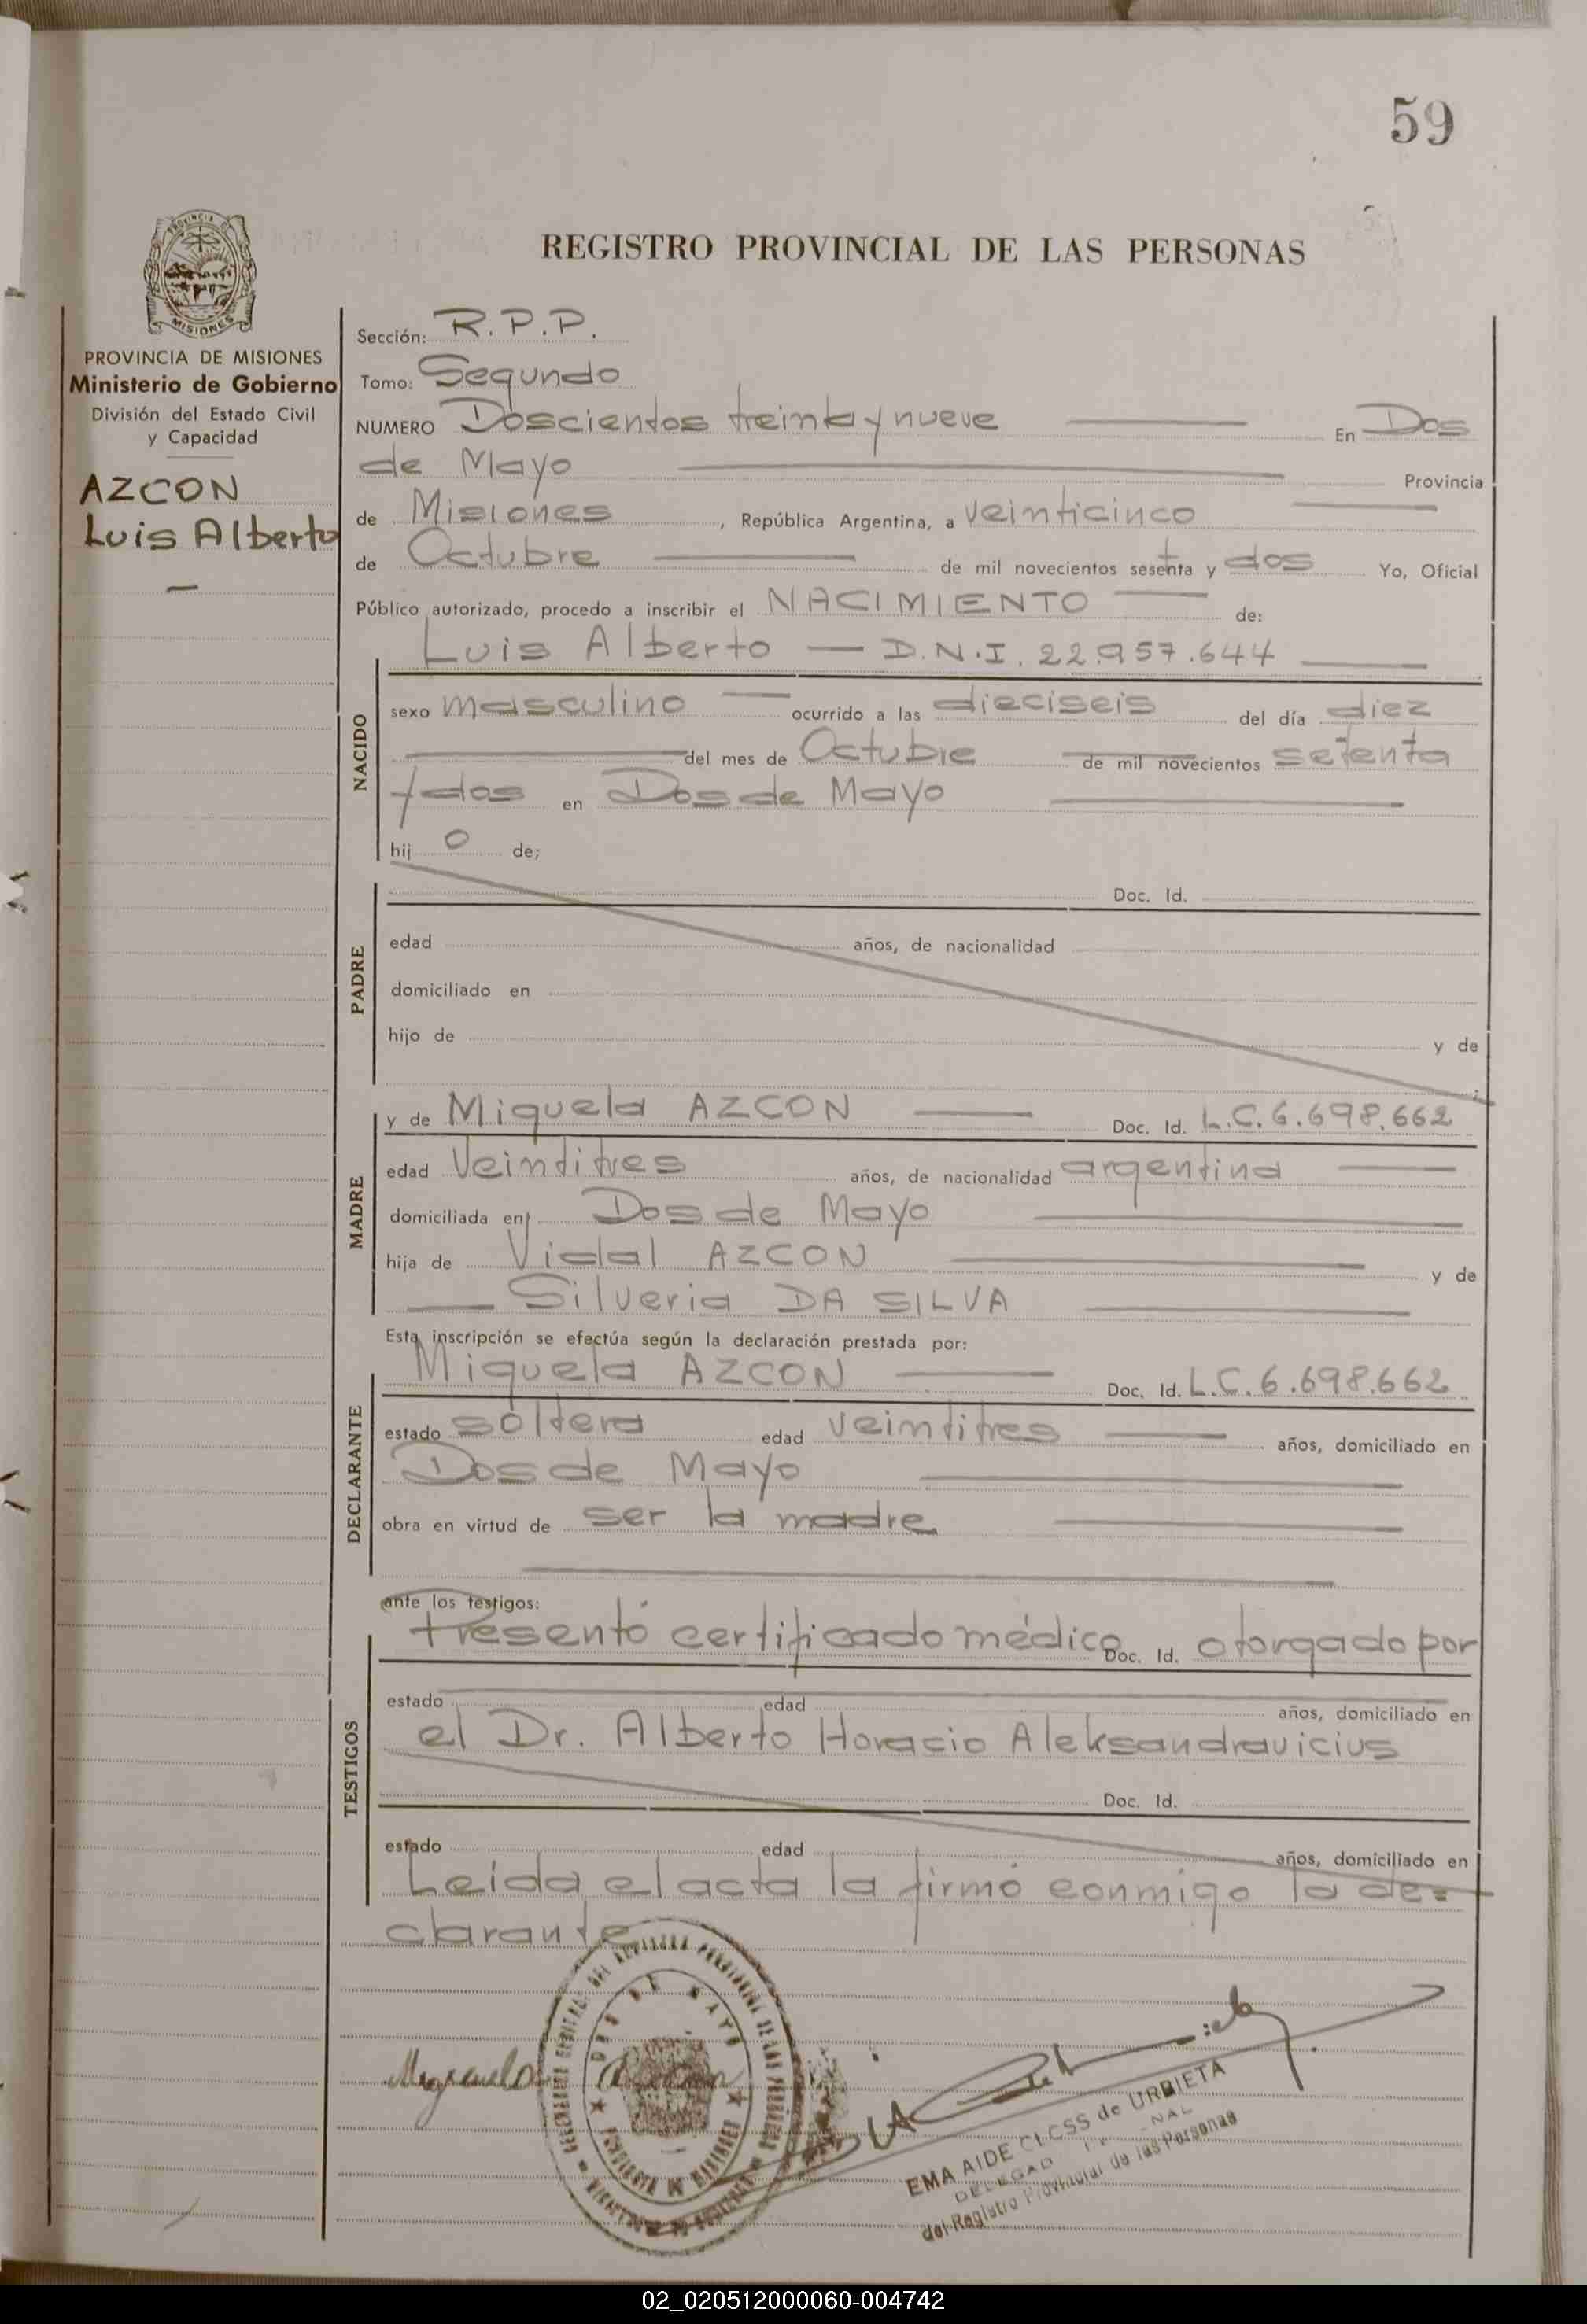 59
REGISTRO PROVINCIAL DE LAS PERSONAS
MISIONES
PROVINCIA DE MISIONES
Ministerio de Gobierno
División del Estado Civil
y Capacidad
AZCON
Luis Alberto
Sección: R.P.P.
Tomo: Segundo
NUMERO Doscientos treinta y nueve En Dos
de Mayo Provincia
de Misiones, República Argentina, a veinticinco
de Octubre de mil novecientos setenta y dos Yo, Oficial
Público autorizado, procedo a inscribir el NACIMIENTO de:
Luis Alberto — D.N.I. 22.957.644
NACIDO
sexo masculino ocurrido a las dieciseis del día diez
del mes de Octubre de mil novecientos setenta
y dos en Dos de Mayo
hij o de;
PADRE
Doc. Id.
edad años, de nacionalidad
domiciliado en
hijo de y de
MADRE
y de Miguela AZCON Doc. Id. L.C. 6.698.662
edad Veintitres años, de nacionalidad argentina
domiciliada en Dos de Mayo
hija de Vidal AZCON y de
Silveria DA SILVA
Esta inscripción se efectúa según la declaración prestada por:
DECLARANTE
Miguela AZCON Doc. Id. L.C. 6.698.662
estado soltera edad veintitres años, domiciliado en
Dos de Mayo
obra en virtud de ser la madre
ante los testigos:
TESTIGOS
Presentó certificado médico Doc. Id. otorgado por
estado edad años, domiciliado en
el Dr. Alberto Horacio Aleksandravicius
Doc. Id.
estado edad años, domiciliado en
Leida el acta la firmó conmigo la de=
clarante
Miguela Azcon
DOS DE MAYO
PROVINCIA DE MISIONES
EMA AIDE de URBIETA
del Registro Provincial de las Personas
02_020512000060-004742